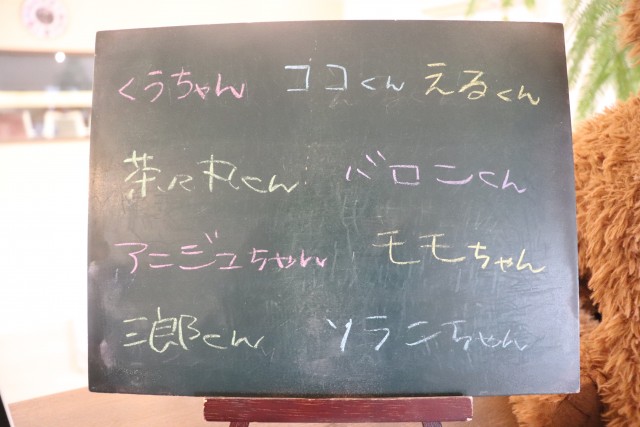 くうちゃん ココくん えるくん
茶々丸くん バロンくん
アニジュちゃん モモちゃん
三郎くん ソランちゃん